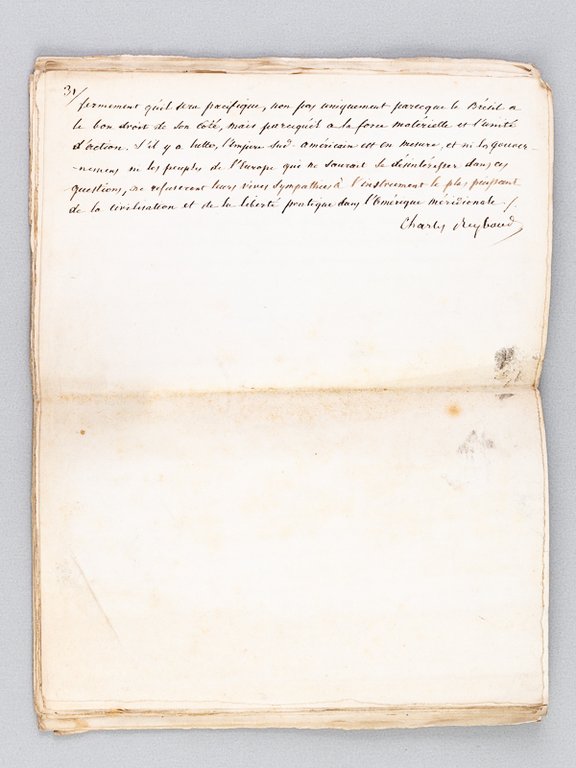 31/
fermement qu'il sera pacifique, non pas uniquement parceque le Brésil a
le bon droit de son côté, mais parcequ'il a la force matérielle et l'unité
d'action. S'il y a lutte, l'empire sud-américain est en mesure, et ni les gouver-
-nemens ni les peuples de l'Europe qui ne sauroit se désintéresser dans ces
questions, ne refuseront leurs vives sympathies à l'instrument le plus puissant
de la civilisation et de la liberté pratique dans l'Amérique méridionale /.
Charles Reybaud